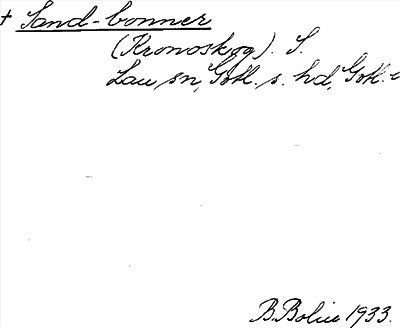 † Sand-bonner
(Kronoskog). S.
Lau sn, Gotl. s. hd, Gotl.
B. Bolin 1933.